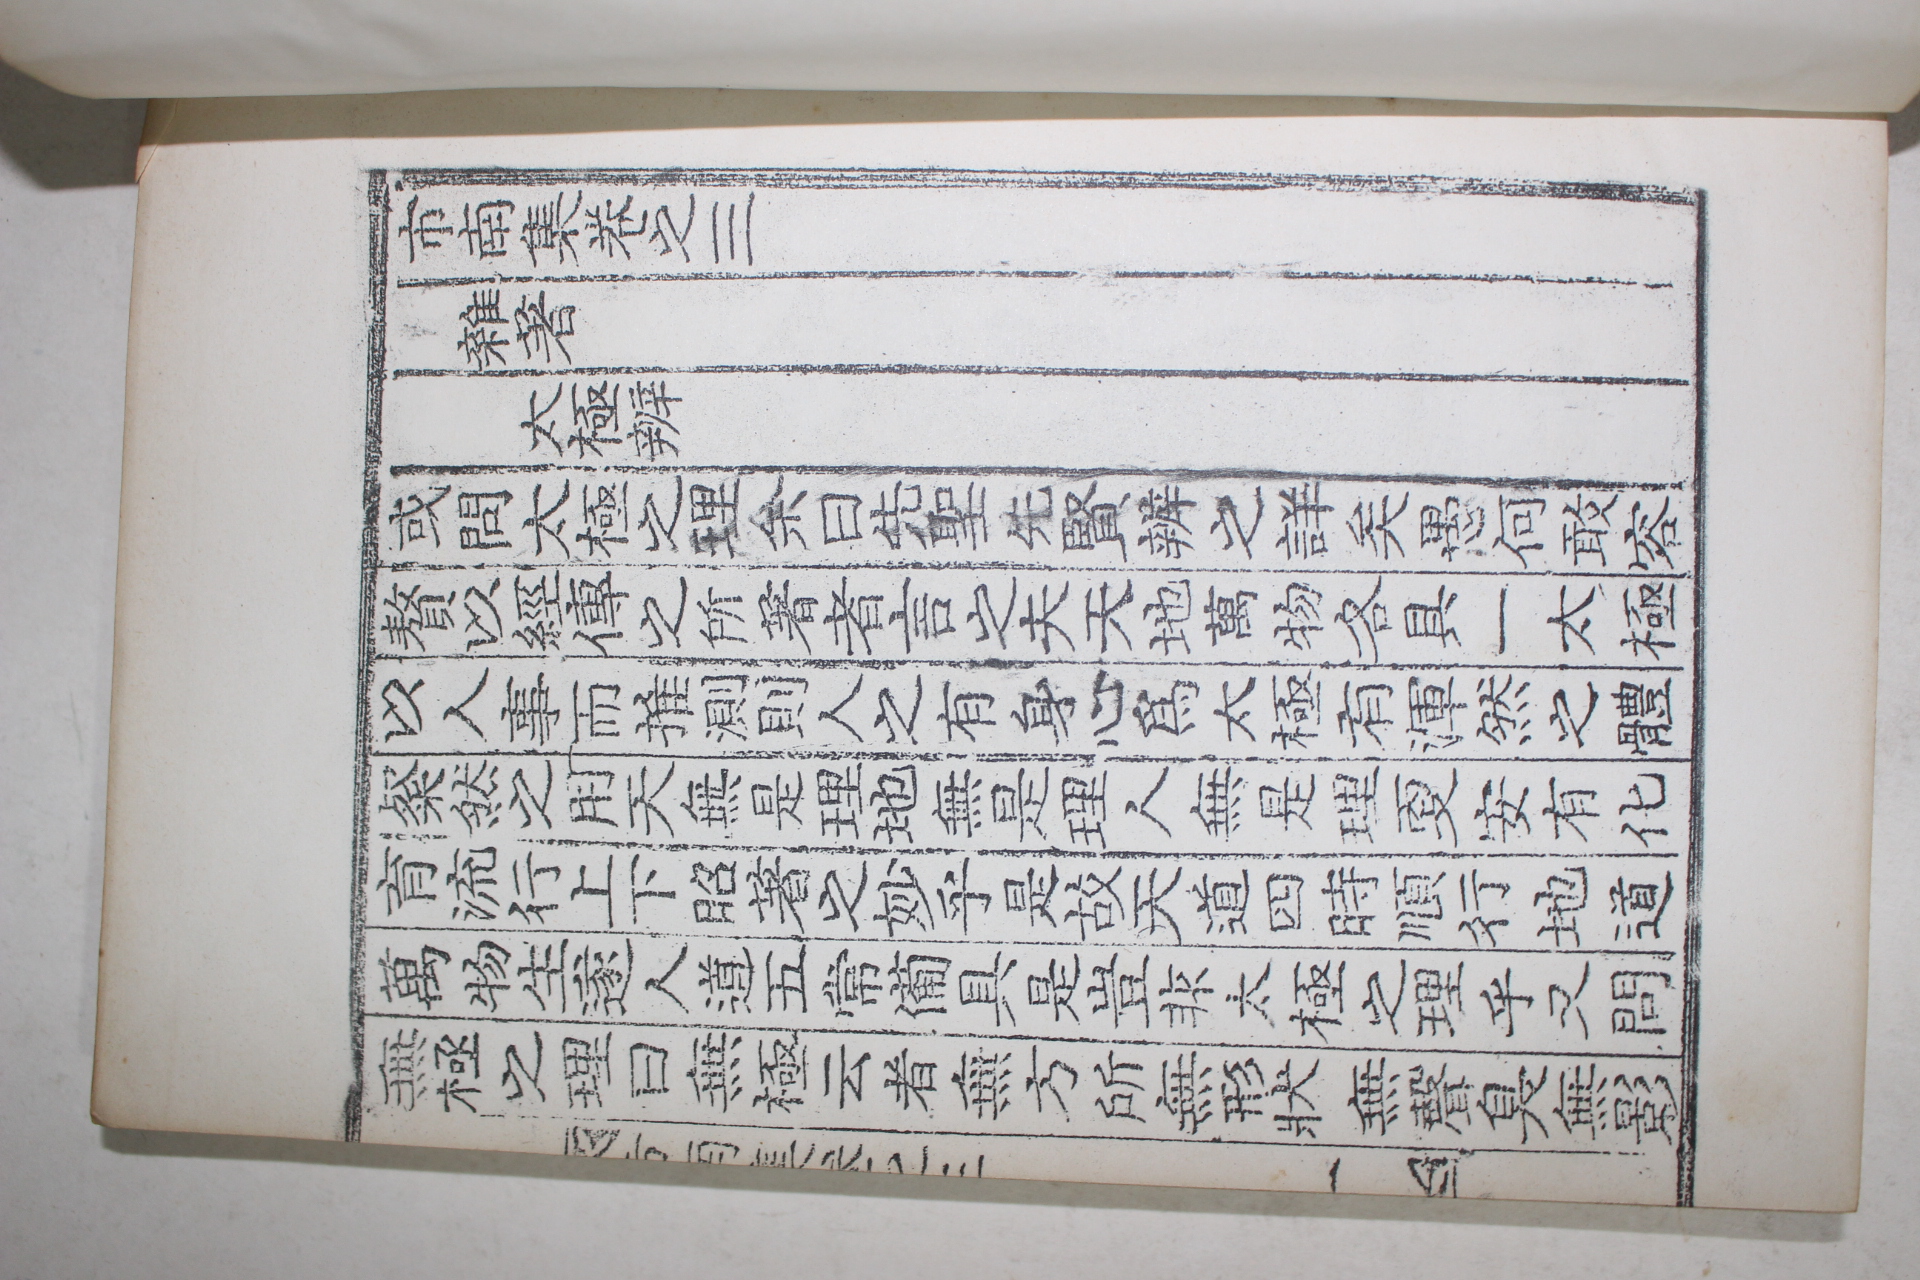 市南集卷之三
雜著
太極辨
或問太極之理余曰先聖先賢辨之詳矣愚何敢容
贅以經傳之所著者言之夫天地萬物各具一太極
以人事而推測則人之有身心爲太極有渾然之體
粲然之用天無是理地無是理人無是理爰安有化
育流行上下昭著之妙乎是故天道四時順行地道
萬物生遂人道五常備具是豈非太極之理乎又問
無極之理曰無極云者無方所無形狀無聲臭無影
市南集卷之三 一